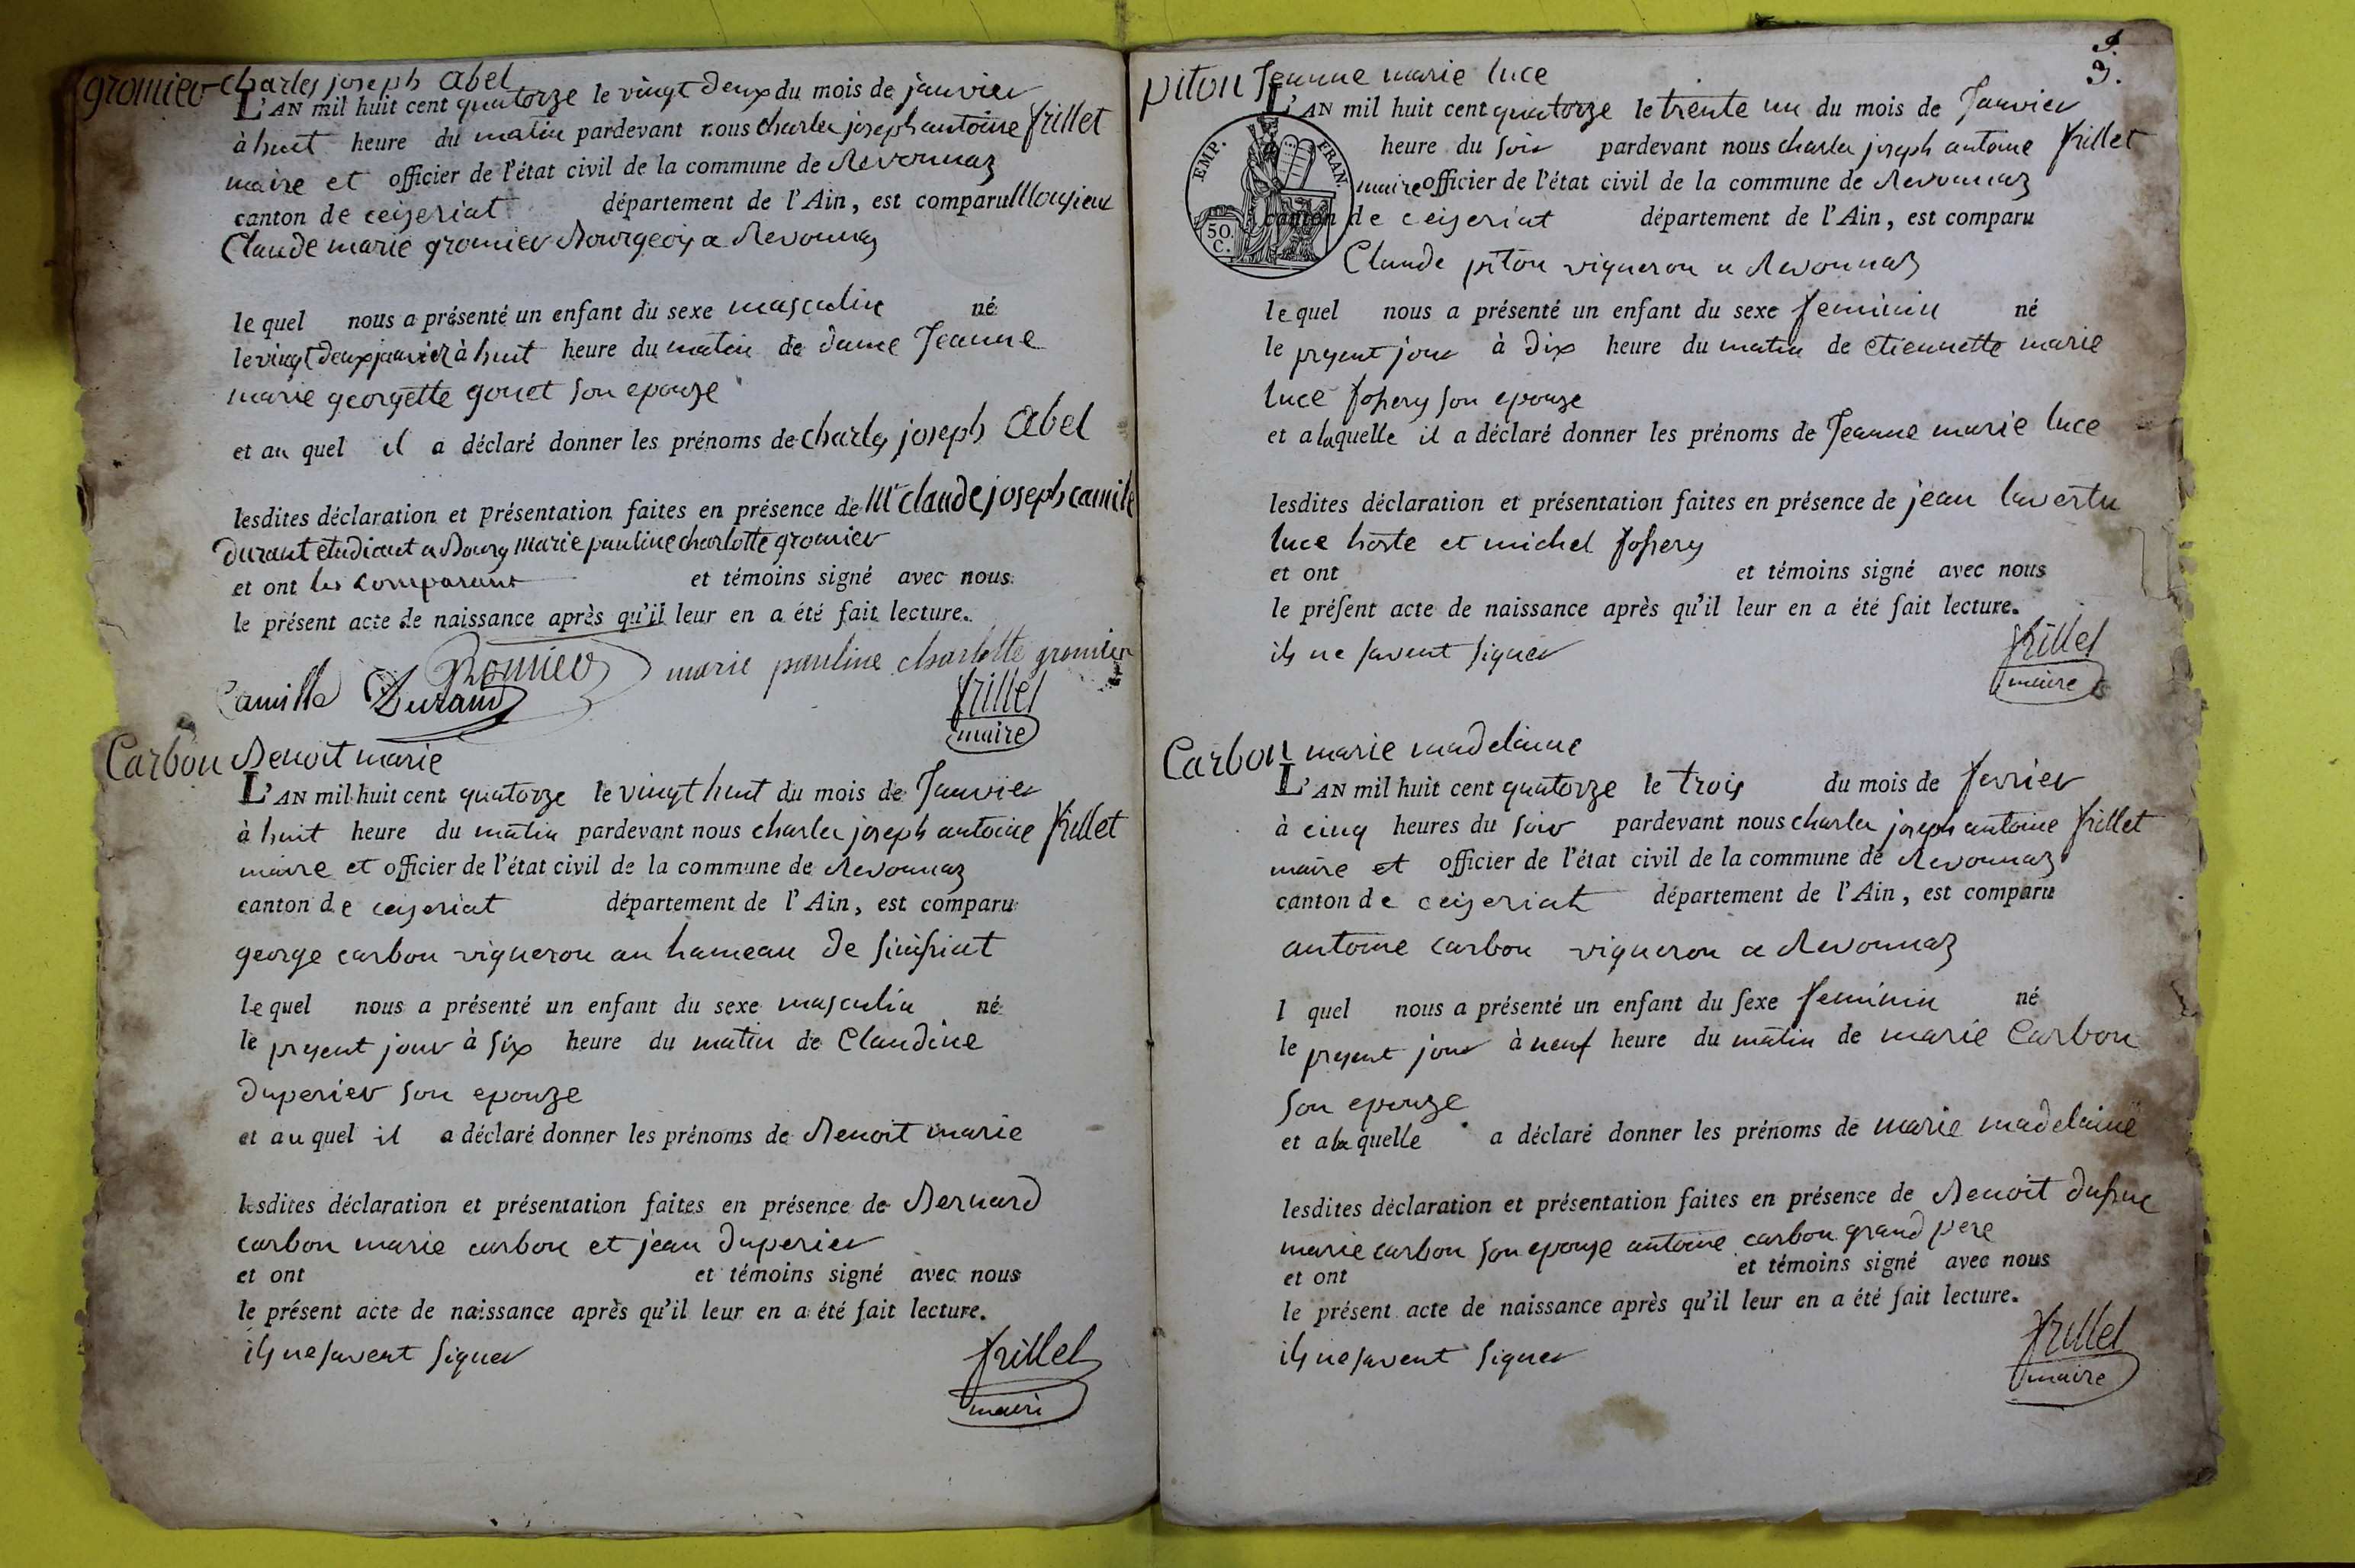 gromier charles joseph abel
L'AN mil huit cent quatorze le vingt deux du mois de janvier
à huit heure du matin pardevant nous charles joseph antoine frillet
maire et officier de l'état civil de la commune de Revonnaz
canton de ceizeriat département de l'Ain, est comparu Monsieur
Claude marie gromier Bourgeois a Revonnaz
le quel nous a présenté un enfant du sexe masculin né
le vingt deux janvier à huit heure du matin de dame Jeanne
marie georgette gouet son epouze
et au quel il a déclaré donner les prénoms de charles joseph abel
lesdites déclaration et présentation faites en présence de Mr claude joseph camile
durant etudiant a Bourg marie pauline charlotte gromier
et ont les comparant et témoins signé avec nous
le présent acte de naissance après qu'il leur en a été fait lecture.
Gromier marie pauline charlotte gromier
Camille Durand frillet
maire
Carbon Benoit marie
L'AN mil huit cent quatorze le vingt huit du mois de Janvier
à huit heure du matin pardevant nous charles joseph antoine frillet
maire et officier de l'état civil de la commune de Revonnaz
canton de ceyzeriat département de l'Ain, est comparu
george carbon vigneron au hameau de
le quel nous a présenté un enfant du sexe masculin né
le present jour à six heure du matin de Claudine
duperier son epouze
et au quel il a déclaré donner les prénoms de Benoit marie
lesdites déclaration et présentation faites en présence de Bernard
carbon marie carbon et jean duperier
et ont et témoins signé avec nous
le présent acte de naissance après qu'il leur en a été fait lecture.
ils ne savent signer frillet
maire
3.
piton Jeanne marie luce
L'AN mil huit cent quatorze le trente un du mois de Janvier
heure du soir pardevant nous charles joseph antoine frillet
maire officier de l'état civil de la commune de Revonnaz
canton de ceizeriat département de l'Ain, est comparu
EMP. FRAN.
50.
C.
Claude piton vigneron a Revonnaz
le quel nous a présenté un enfant du sexe feminin né
le present jour à dix heure du matin de etiennette marie
luce son epouze
et a laquelle il a déclaré donner les prénoms de Jeanne marie luce
lesdites déclaration et présentation faites en présence de jean lavertu
luce hoste et michel
et ont et témoins signé avec nous
le présent acte de naissance après qu'il leur en a été fait lecture.
ils ne savent signer frillet
maire
Carbon marie madelaine
L'AN mil huit cent quatorze le trois du mois de fevrier
à cinq heures du soir pardevant nous charles joseph antoine frillet
maire et officier de l'état civil de la commune de Revonnaz
canton de ceizeriat département de l'Ain, est comparu
antoine carbon vigneron a Revonnaz
l quel nous a présenté un enfant du sexe feminin né
le present jour à neuf heure du matin de marie Carbon
son epouze
et a la quelle a déclaré donner les prénoms de marie madelaine
lesdites déclaration et présentation faites en présence de Benoit
marie carbon son epouze antoine carbon grand pere
et ont et témoins signé avec nous
le présent acte de naissance après qu'il leur en a été fait lecture.
ils ne savent signer frillet
maire